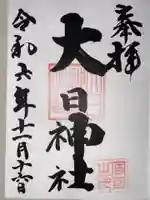 奉拝
大日神社
令和六年十一月十六日